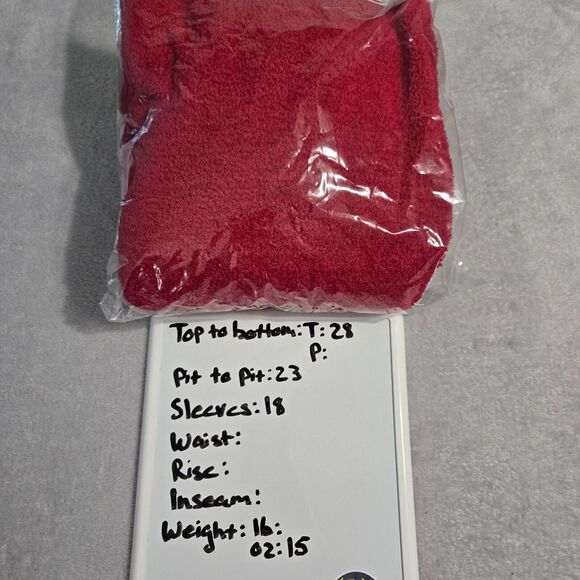 Top to bottom: T: 28
P:
Pit to Pit: 23
Sleeves: 18
Waist:
Rise:
Inseam:
Weight: lb:
oz: 15